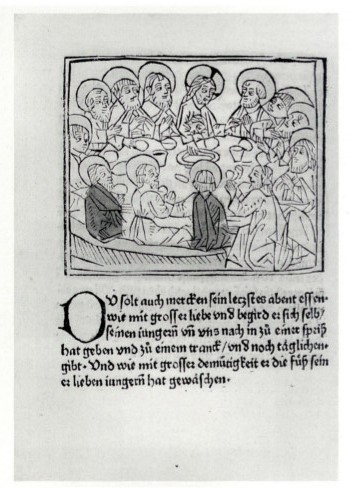 DV solt auch mercken sein leczstes abent essen·
wie mit grosser liebe vnd begird er sich selb/
seinen iungern̄ vn̄ vns nach in zů einer speiß
hat geben vnd zů einem tranck/vnd noch täglichen·
gibt· Vnd wie mit grosser demütigkeit er die füß sein
er lieben iungern̄ hat gewäschen·